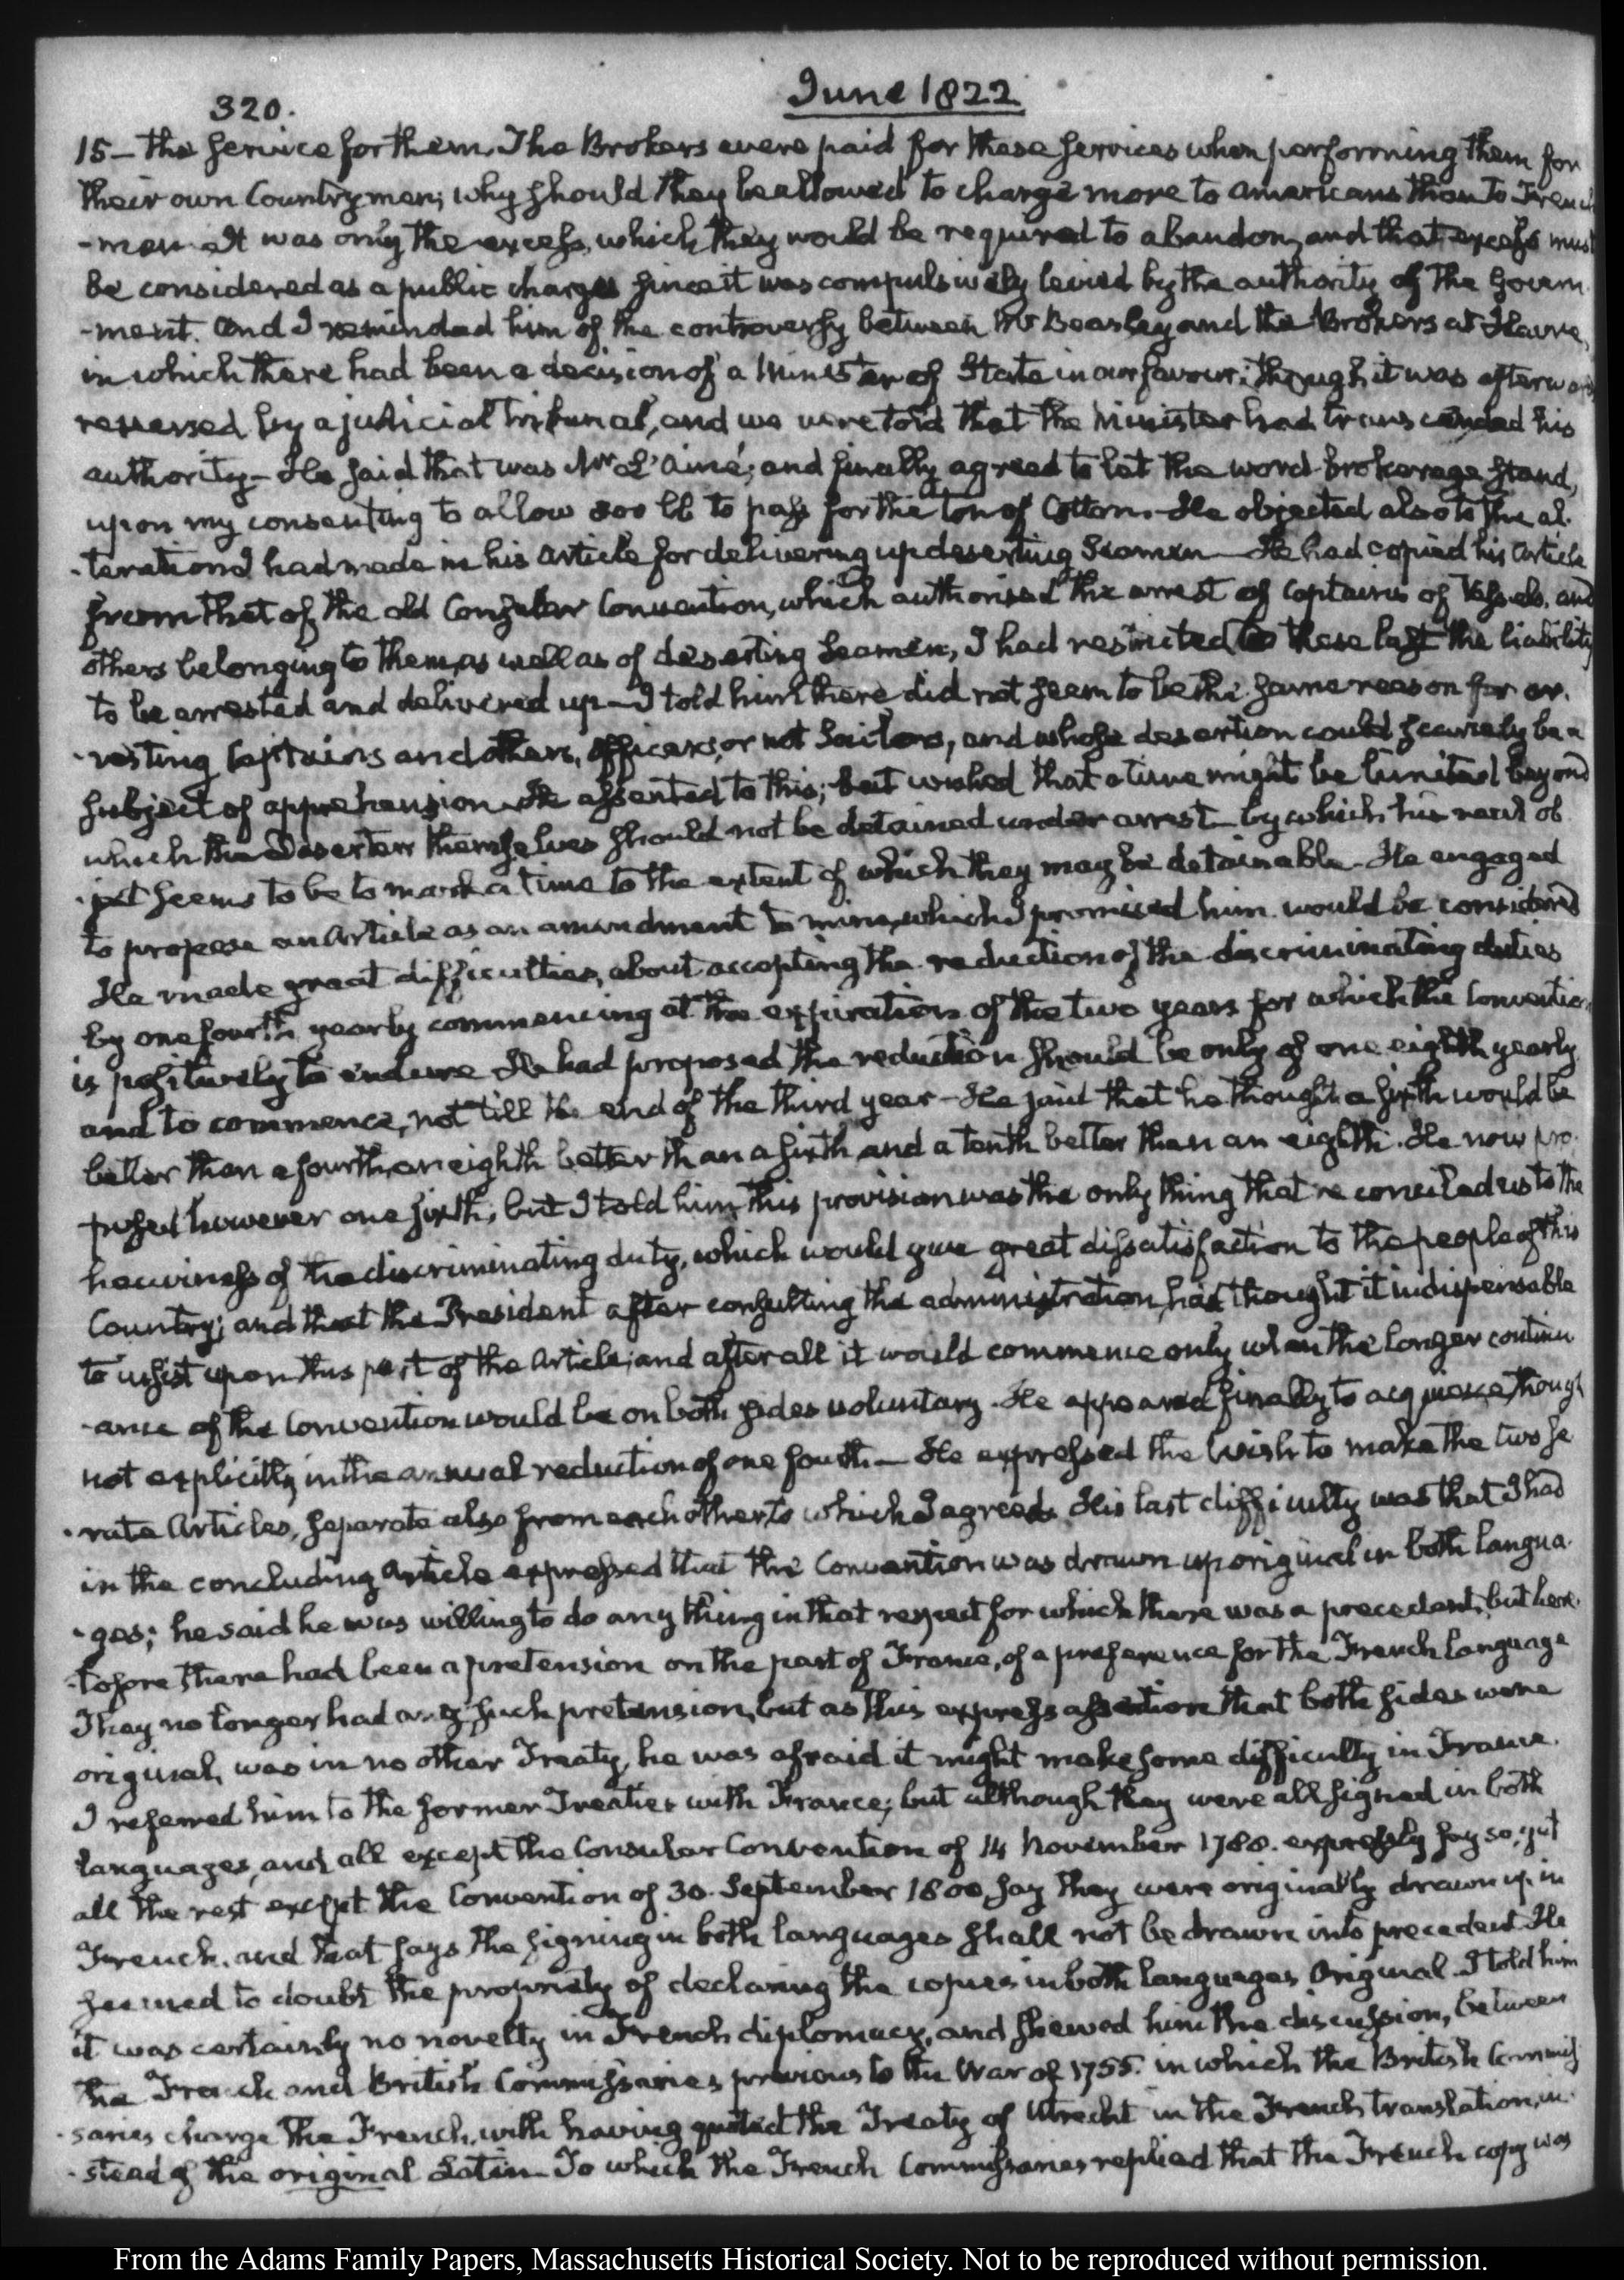 320.
June 1822
15 – the service for them. The Brokers were paid for these services when performing them for
their own Countrymen; why should they be allowed to charge more to Americans than to French
-men. It was only the excess, which they would be required to abandon, and that excess must
be considered as a public charge, since it was compulsively levied by the authority of the Govern
-ment. And I reminded him of the controversy between Mr Beasley and the Brokers at Havre,
in which there had been a decision of a Minister of State in our favour; though it was afterwards
reversed by a judicial tribunal, and we were told that the Minister had transcended his
authority – He said that was Mr L'ainé; and finally agreed to let the word brokerage stand,
upon my consenting to allow 800 lb to pass for the ton of Cotton. – He objected also to the al-
-terations I had made in his Article for delivering up deserting Seamen – He had copied his Article
from that of the old Consular Convention, which authorised the arrest of Captains of Vessels, and
others belonging to them, as well as of deserting Seamen, I had restricted to these last the liability
to be arrested and delivered up – I told him there did not seem to be the same reason for ar-
-resting Captains and others, officers, or not Sailors, and whose desertion could scarcely be a
subject of apprehension. He assented to this; but wished that a time might be limited beyond
which the Deserters themselves should not be detained under arrest – by which his real ob
-ject seems to be to mark a time to the extent of which they may be detainable – He engaged
to propose an Article as an amendment to mine, which I promised him would be considered
He made great difficulties, about accepting the reduction of the discriminating duties
by one fourth yearly commencing at the expiration of the two years for which the Convention
is positively to endure He had proposed the reduction should be only of one eighth yearly
and to commence, not till the end of the third year – He said that he thought a sixth would be
better than a fourth, an eighth better than a sixth, and a tenth better than an eighth. He now pro-
posed however one sixth; but I told him this provision was the only thing that reconciled us to the
heaviness of the discriminating duty, which would give great dissatisfaction to the people of this
Country; and that the President after consulting the administration, had thought it indispensable
to insist upon this part of the Article; and after all it would commence only when the longer continu
-ance of the Convention would be on both sides voluntary. He appeared finally to acquiesce, though
not explicitly, in the annual reduction of one fourth – He expressed the wish to make the two sepa
-rate Articles, separate also from each other, to which I agreed. His last difficulty was that I had
in the concluding Article expressed that the Convention was drawn up original in both langua-
-ges; he said he was willing to do any thing in that respect for which there was a precedent, but here-
-tofore there had been a pretension on the part of France, of a preference for the French language
They no longer had any such pretension, but as this express assertion that both sides were
original, was in no other Treaty, he was afraid it might make some difficulty in France.
I referred him to the former Treaties with France; but although they were all signed in both
languages, and all except the Consular Convention of 14 November 1788. expressly say so, yet
all the rest except the Convention of 30. September 1800 say they were originally drawn up in
French. and that says the signing in both languages shall not be drawn into precedent. He
seemed to doubt the propriety of declaring the copies in both languages Original. I told him
it was certainly no novelty in French diplomacy, and shewed him the discussion, between
the French and British Commissaries previous to the War of 1755. in which the British Commis
-saries charge the French, with having quoted the Treaty of Utrecht in the French translation, in-
-stead of the original Latin – To which the French Commissaries replied that the French copy was
From the Adams Family Papers, Massachusetts Historical Society. Not to be reproduced without permission.